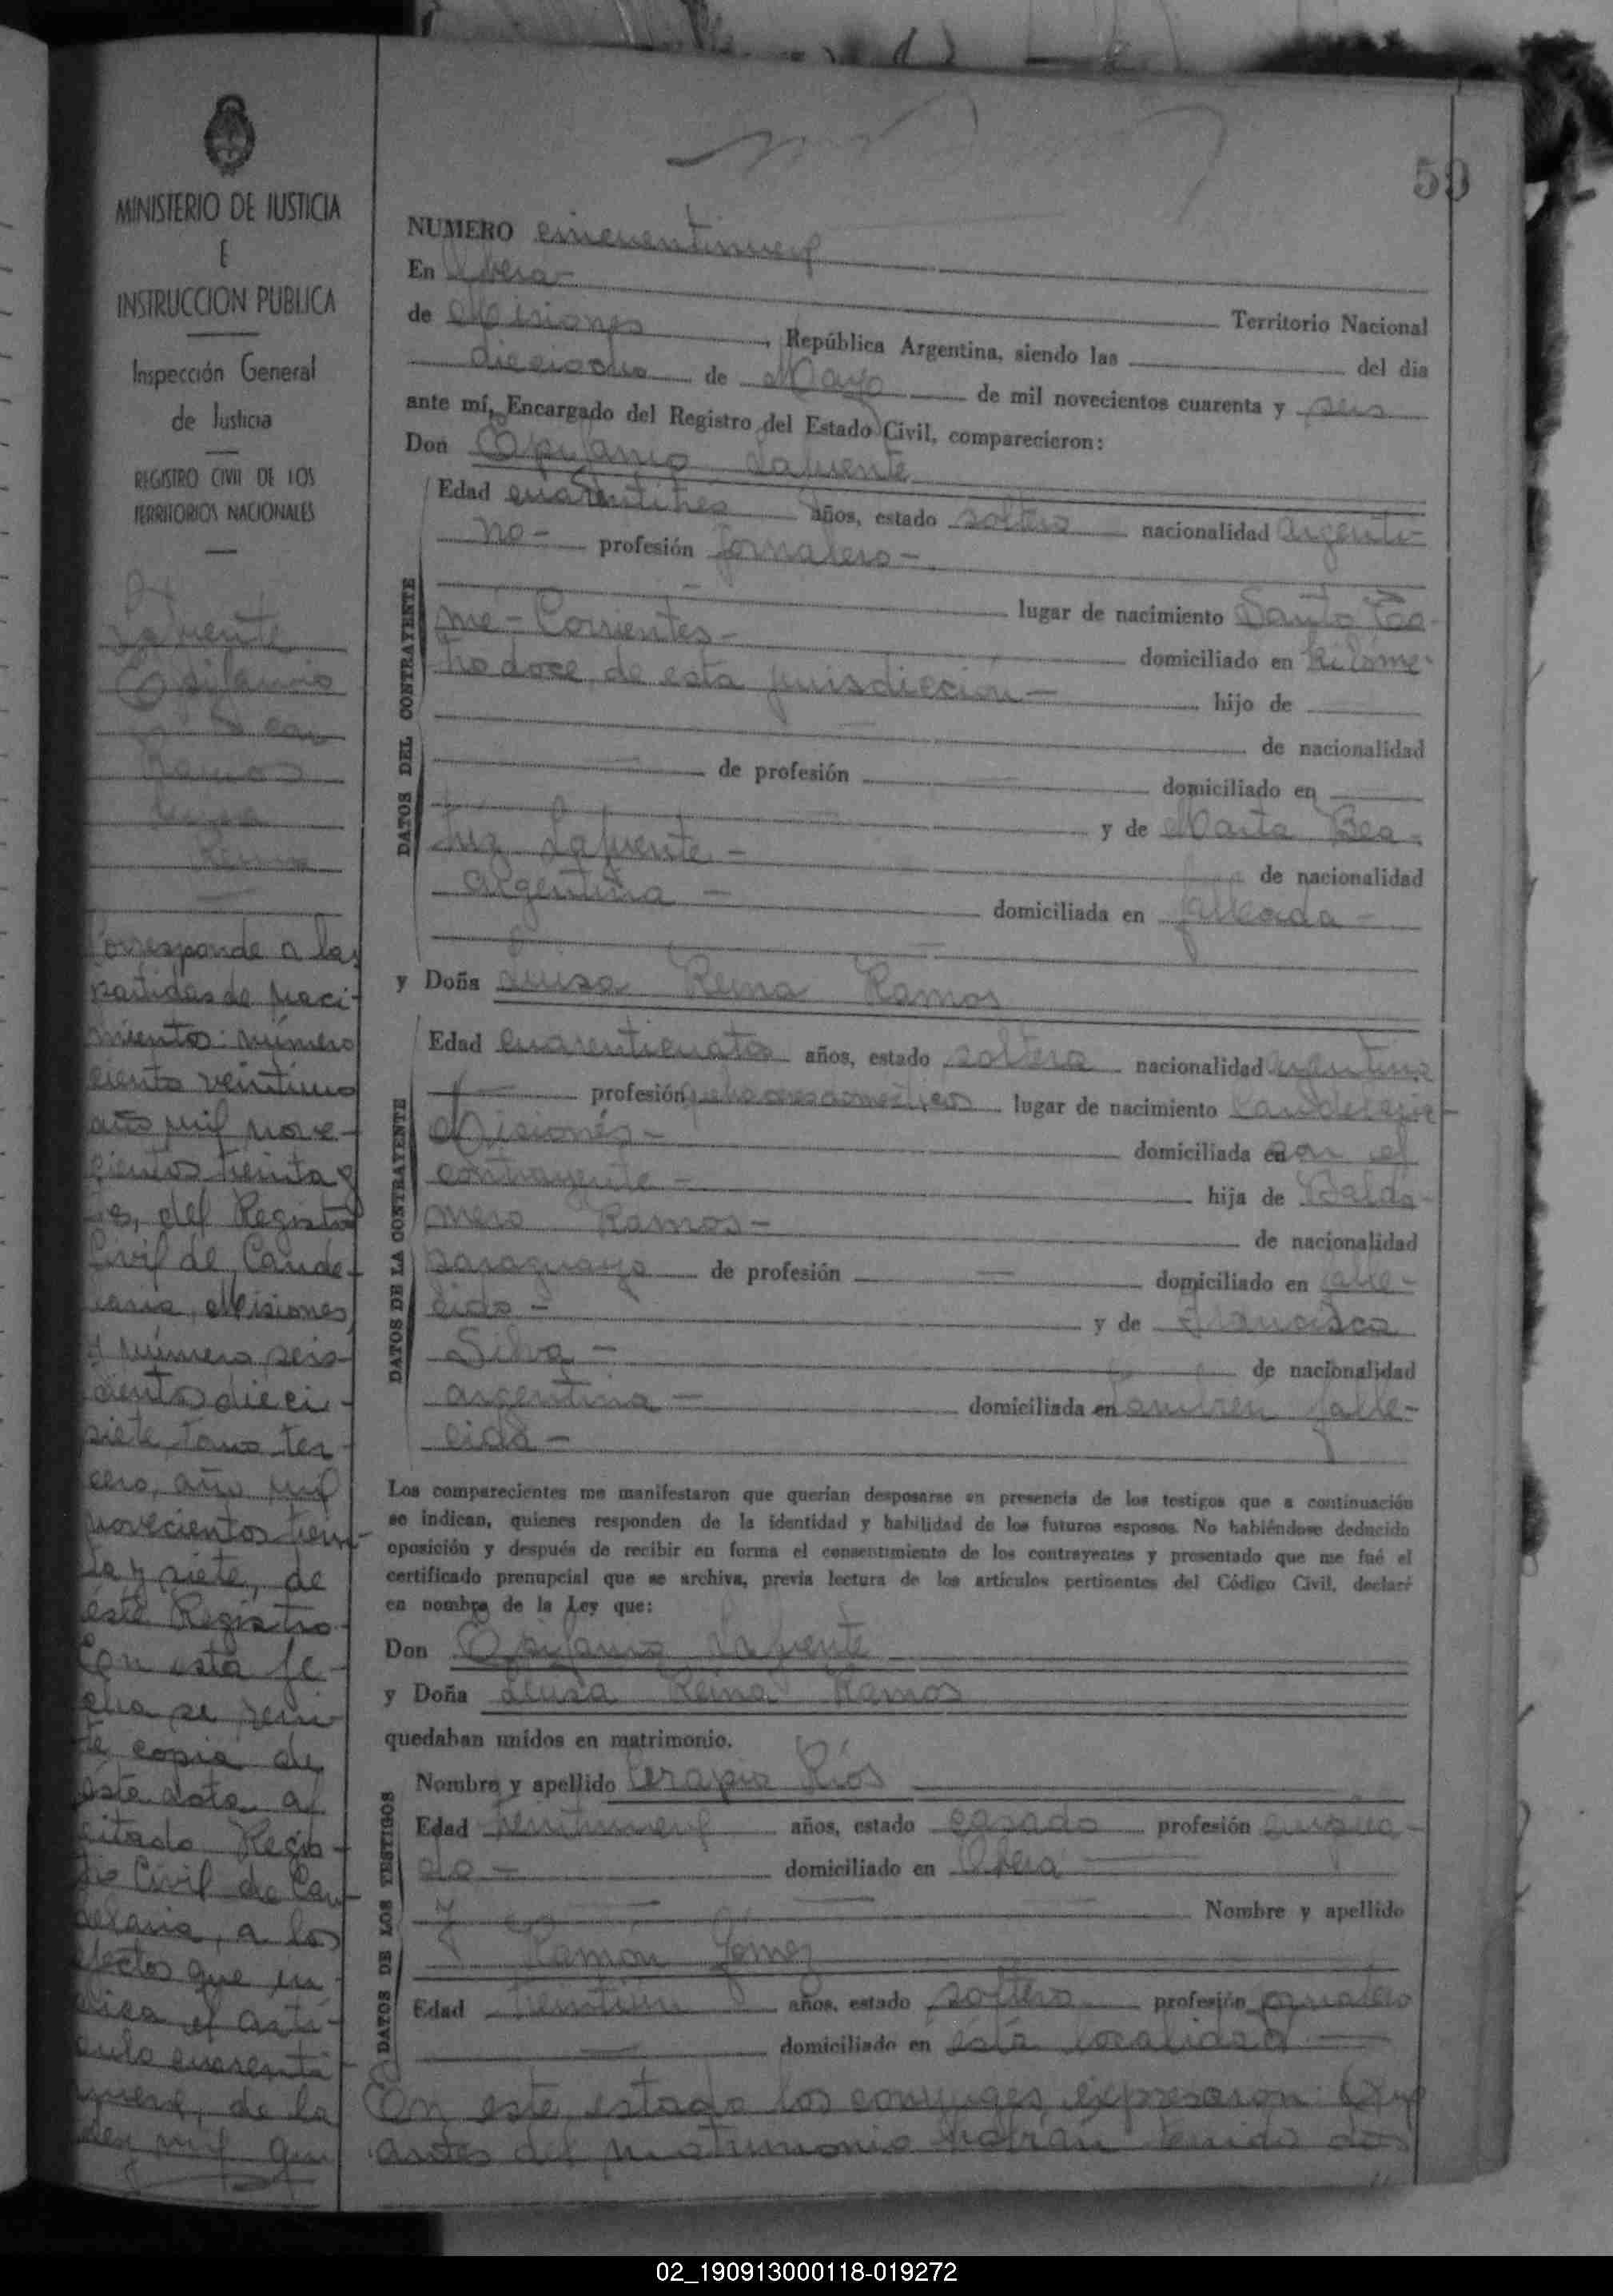 MINISTERIO DE JUSTICIA
E
INSTRUCCION PUBLICA
Inspección General
de Justicia
REGISTRO CIVIL DE LOS
TERRITORIOS NACIONALES
Lafuente
Epifanio
con
Ramos
Luisa
Reina
Corresponde a las
partidas de naci-
miento: número
ciento veintiuno
año mil nove-
cientos treinta y
del Registro
Civil de Cande-
laria, Misiones,
y número seis-
cientos dieci-
siete, tomo ter-
cero, año mil
novecientos trein-
ta y siete, de
éste Registro.
Con esta fe-
cha se remi-
te copia de
ésta acta al
citado Regis-
tro Civil de Can-
delaria, a los
efectos que in-
dica el artí-
culo cuarenti
nueve, de la
ley mil qui
59
NUMERO cincuentinueve
En Obera-
Territorio Nacional
de Misiones, República Argentina, siendo las del dia
dieciocho de Mayo de mil novecientos cuarenta y seis
ante mí, Encargado del Registro del Estado Civil, comparecieron:
Don Epifanio Lafuente
DATOS DEL CONTRAYENTE
Edad cuarentitrés años, estado soltero nacionalidad argenti-
no- profesión jornalero-
lugar de nacimiento Santo To-
mé-Corrientes- domiciliado en kilóme-
tro doce, de esta jurisdicción- hijo de
de nacionalidad
de profesión domiciliado en
y de Maria Bea-
triz Lafuente- de nacionalidad
argentina- domiciliada en fallecida-
y Doña Luisa Reina Ramos
DATOS DE LA CONTRAYENTE
Edad cuarenticuatro años, estado soltera nacionalidad argentina
profesión quehaceres domésticos lugar de nacimiento Candelaria-
Misiones- domiciliada en con el
contrayente- hija de Baldo-
mero Ramos- de nacionalidad
paraguayo de profesión domiciliado en falle-
cido- y de Francisca
Silva- de nacionalidad
argentina- domiciliada en también falle-
cida-
Los comparecientes me manifestaron que querían desposarse en presencia de los testigos que a continuación
se indican, quienes responden de la identidad y habilidad de los futuros esposos. No habiéndose deducido
oposición y después de recibir en forma el consentimiento de los contrayentes y presentado que me fué el
certificado prenupcial que se archiva, previa lectura de los artículos pertinentes del Código Civil, declaré
en nombre de la Ley que:
Don Epifanio Lafuente
y Doña Luisa Reina Ramos
quedaban unidos en matrimonio.
DATOS DE LOS TESTIGOS
Nombre y apellido Serapio Ríos
Edad treintinueve años, estado casado profesión emplea-
do- domiciliado en Oberá
Nombre y apellido
Ramón Gómez
Edad treintiún años, estado soltero profesión jornalero
domiciliado en ésta localidad
En este estado los conyuges, expresaron: Que
antes del matrimonio habían tenido dos
02_190913000118-019272